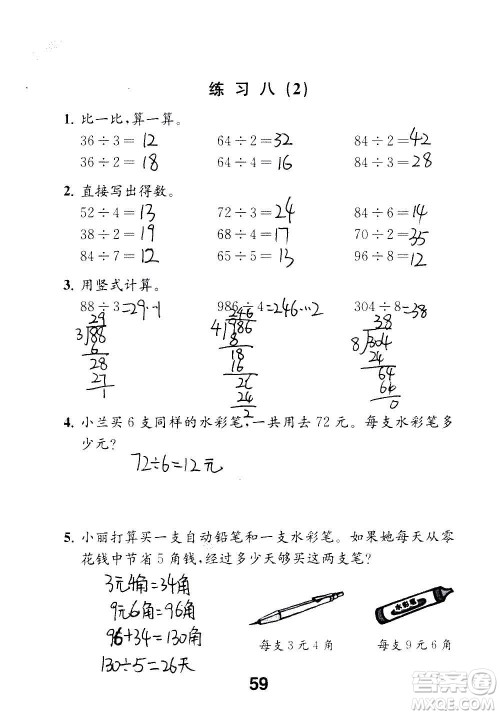 练习八(2)
1. 比一比,算一算。
36÷3=12 64÷2=32 84÷2=42
36÷2=18 64÷4=16 84÷3=28
2. 直接写出得数。
52÷4=13 72÷3=24 64÷4=16
38÷2=19 60÷5=12 70÷2=35
84÷7=12 65÷5=13 96÷8=12
3. 用竖式计算。
88÷3=29…1 986÷4=246…2 304÷8=38
29 246 38
3 88 4 986 8 304
6 8 24
28 18 64
27 16 64
1 26 0
24
2
4. 小兰买 6 支同样的水彩笔,一共用去 72 元。每支水彩笔多
少元?
72÷6=12元
5. 小丽打算买一支自动铅笔和一支水彩笔。如果她每天从零
花钱中节省 5 角钱,经过多少天够买这两支笔?
3元4角=34角
9元6角=96角
96+34=130角
130÷5=26天
水彩笔
每支3元4角 每支9元6角
59
答案圈
MXQE.COM